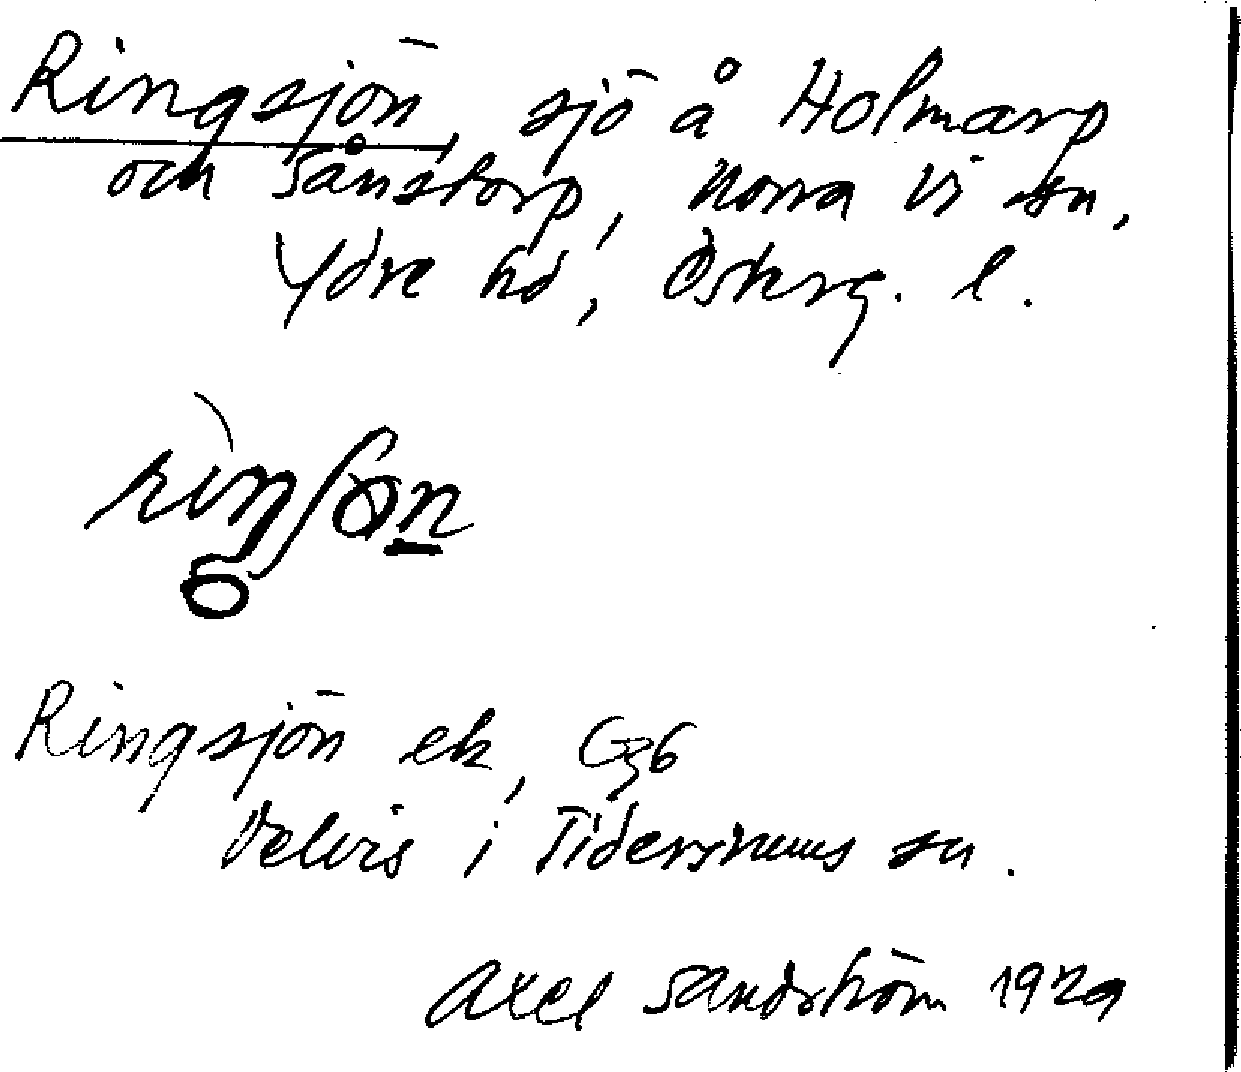 Ringsjön, sjö å Holmarp
och Sånstorp, Norra Vi sn,
Ydre hd, Österg. l.
Ringsjön ek,
Delvis i Tidersrums sn.
Axel Sandström 1929